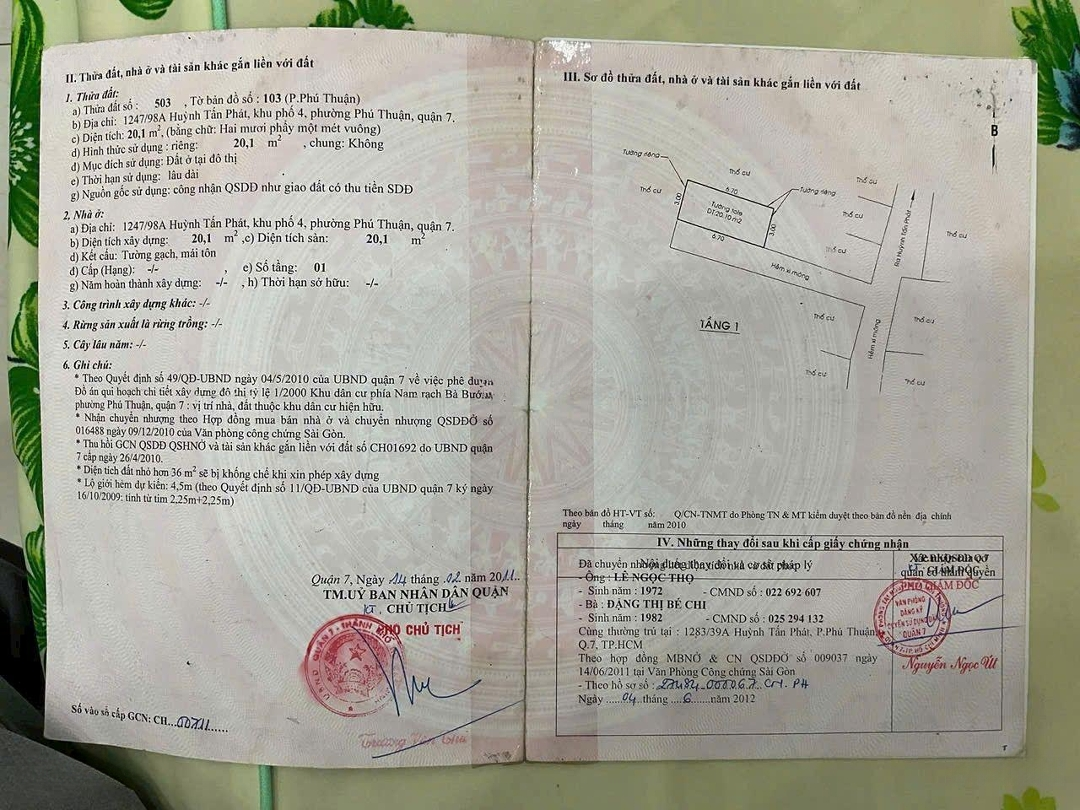 II. Thửa đất, nhà ở và tài sản khác gắn liền với đất
1. Thửa đất:
a) Thửa đất số : 503 , Tờ bản đồ số : 103 (P.Phú Thuận)
b) Địa chỉ: 1247/98A Huỳnh Tấn Phát, khu phố 4, phường Phú Thuận, quận 7.
c) Diện tích: 20,1 m², (bằng chữ: Hai mươi phẩy một mét vuông)
d) Hình thức sử dụng : riêng: 20,1 m² , chung: Không
đ) Mục đích sử dụng: Đất ở tại đô thị
e) Thời hạn sử dụng: lâu dài
g) Nguồn gốc sử dụng: công nhận QSDĐ như giao đất có thu tiền SDĐ
2. Nhà ở:
a) Địa chỉ: 1247/98A Huỳnh Tấn Phát, khu phố 4, phường Phú Thuận, quận 7.
b) Diện tích xây dựng: 20,1 m² ,c) Diện tích sàn: 20,1 m²
d) Kết cấu: Tường gạch, mái tôn
đ) Cấp (Hạng): -/- , e) Số tầng: 01
g) Năm hoàn thành xây dựng: -/- , h) Thời hạn sở hữu: -/-
3. Công trình xây dựng khác: -/-
4. Rừng sản xuất là rừng trồng: -/-
5. Cây lâu năm: -/-
6. Ghi chú:
* Theo Quyết định số 49/QĐ-UBND ngày 04/5/2010 của UBND quận 7 về việc phê duyệt
Đồ án qui hoạch chi tiết xây dựng đô thị tỷ lệ 1/2000 Khu dân cư phía Nam rạch Bà Bướm,
phường Phú Thuận, quận 7 : vị trí nhà, đất thuộc khu dân cư hiện hữu.
* Nhận chuyển nhượng theo Hợp đồng mua bán nhà ở và chuyển nhượng QSDĐỞ số
016488 ngày 09/12/2010 của Văn phòng công chứng Sài Gòn.
* Thu hồi GCN QSDĐ QSHNỞ và tài sản khác gắn liền với đất số CH01692 do UBND quận
7 cấp ngày 26/4/2010.
* Diện tích đất nhỏ hơn 36 m² sẽ bị khống chế khi xin phép xây dựng
* Lộ giới hẻm dự kiến: 4,5m (theo Quyết định số 11/QĐ-UBND của UBND quận 7 ký ngày
16/10/2009: tính từ tim 2,25m+2,25m)
Quận 7, Ngày 14 tháng 02 năm 2011
TM.UỶ BAN NHÂN DÂN QUẬN
KT. CHỦ TỊCH
PHÓ CHỦ TỊCH
Số vào sổ cấp GCN: CH...00711......
III. Sơ đồ thửa đất, nhà ở và tài sản khác gắn liền với đất
B
Tường riêng
Thổ cư
Thổ cư
Thổ cư
6.70
Tường riêng
3.00
Tường tole
DT:20.10 m2
3.00
6.70
Thổ cư
Thổ cư
Ra Huỳnh Tấn Phát
Thổ cư
Hẻm xi măng
TẦNG 1
Thổ cư
Thổ cư
Hẻm xi măng
Thổ cư
Thổ cư
Theo bản đồ HT-VT số: Q/CN-TNMT do Phòng TN & MT kiểm duyệt theo bản đồ nền địa chính
ngày tháng năm 2010
IV. Những thay đổi sau khi cấp giấy chứng nhận
Nội dung thay đổi và cơ sở pháp lý
quan có thẩm quyền
KT. GIÁM ĐỐC
PHÓ GIÁM ĐỐC
- Ông : LÊ NGỌC THỌ
- Sinh năm : 1972 - CMND số : 022 692 607
- Bà : ĐẶNG THỊ BÉ CHI
- Sinh năm : 1982 - CMND số : 025 294 132
Cùng thường trú tại : 1283/39A Huỳnh Tấn Phát, P.Phú Thuận,
Q.7, TP.HCM
Theo hợp đồng MBNỞ & CN QSDĐỞ số 009037 ngày
14/06/2011 tại Văn Phòng Công chứng Sài Gòn
- Theo hồ sơ số :
Ngày ......04.tháng ...6.......năm 2012
VĂN PHÒNG
ĐĂNG KÝ
QUYỀN SỬ DỤNG ĐẤT
QUẬN 7
Nguyễn Ngọc Út